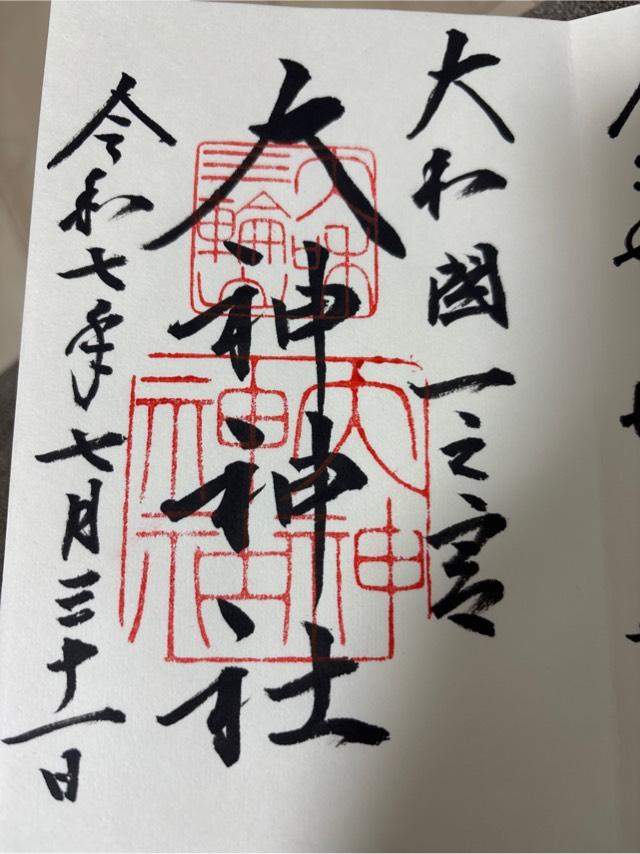 大和國一之宮
大神神社
令和七年七月三十一日
三輪
大神
神社